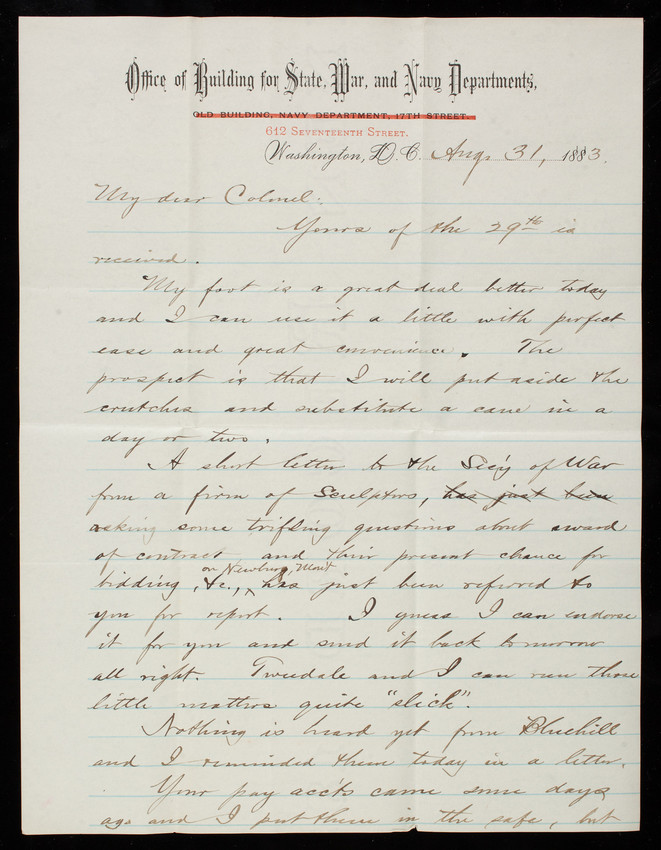 Office of Building for State, War, and Navy Departments,
OLD BUILDING, NAVY DEPARTMENT, 17TH STREET.
612 SEVENTEENTH STREET.
Washington, D.C. Aug. 31, 1883.
My dear Colonel:
Yours of the 29th is
received.
My foot is a great deal better today
and I can use it a little with perfect
ease and great convenience. The
prospect is that I will put aside the
crutches and substitute a cane in a
day or two.
A short letter to the Sec'y of War
from a firm of Sculptors, has just been
asking some trifling questions about award
of contract and their present chance for
on Newburg, Mon't
bidding, &c., has just been referred to
you for report. I guess I can endorse
it for you and send it back tomorrow
all right. Tweedale and I can run those
little matters quite "slick".
Nothing is heard yet from Bluehill
and I reminded them today in a letter.
Your pay acc'ts came some days
ago and I put them in the safe, but